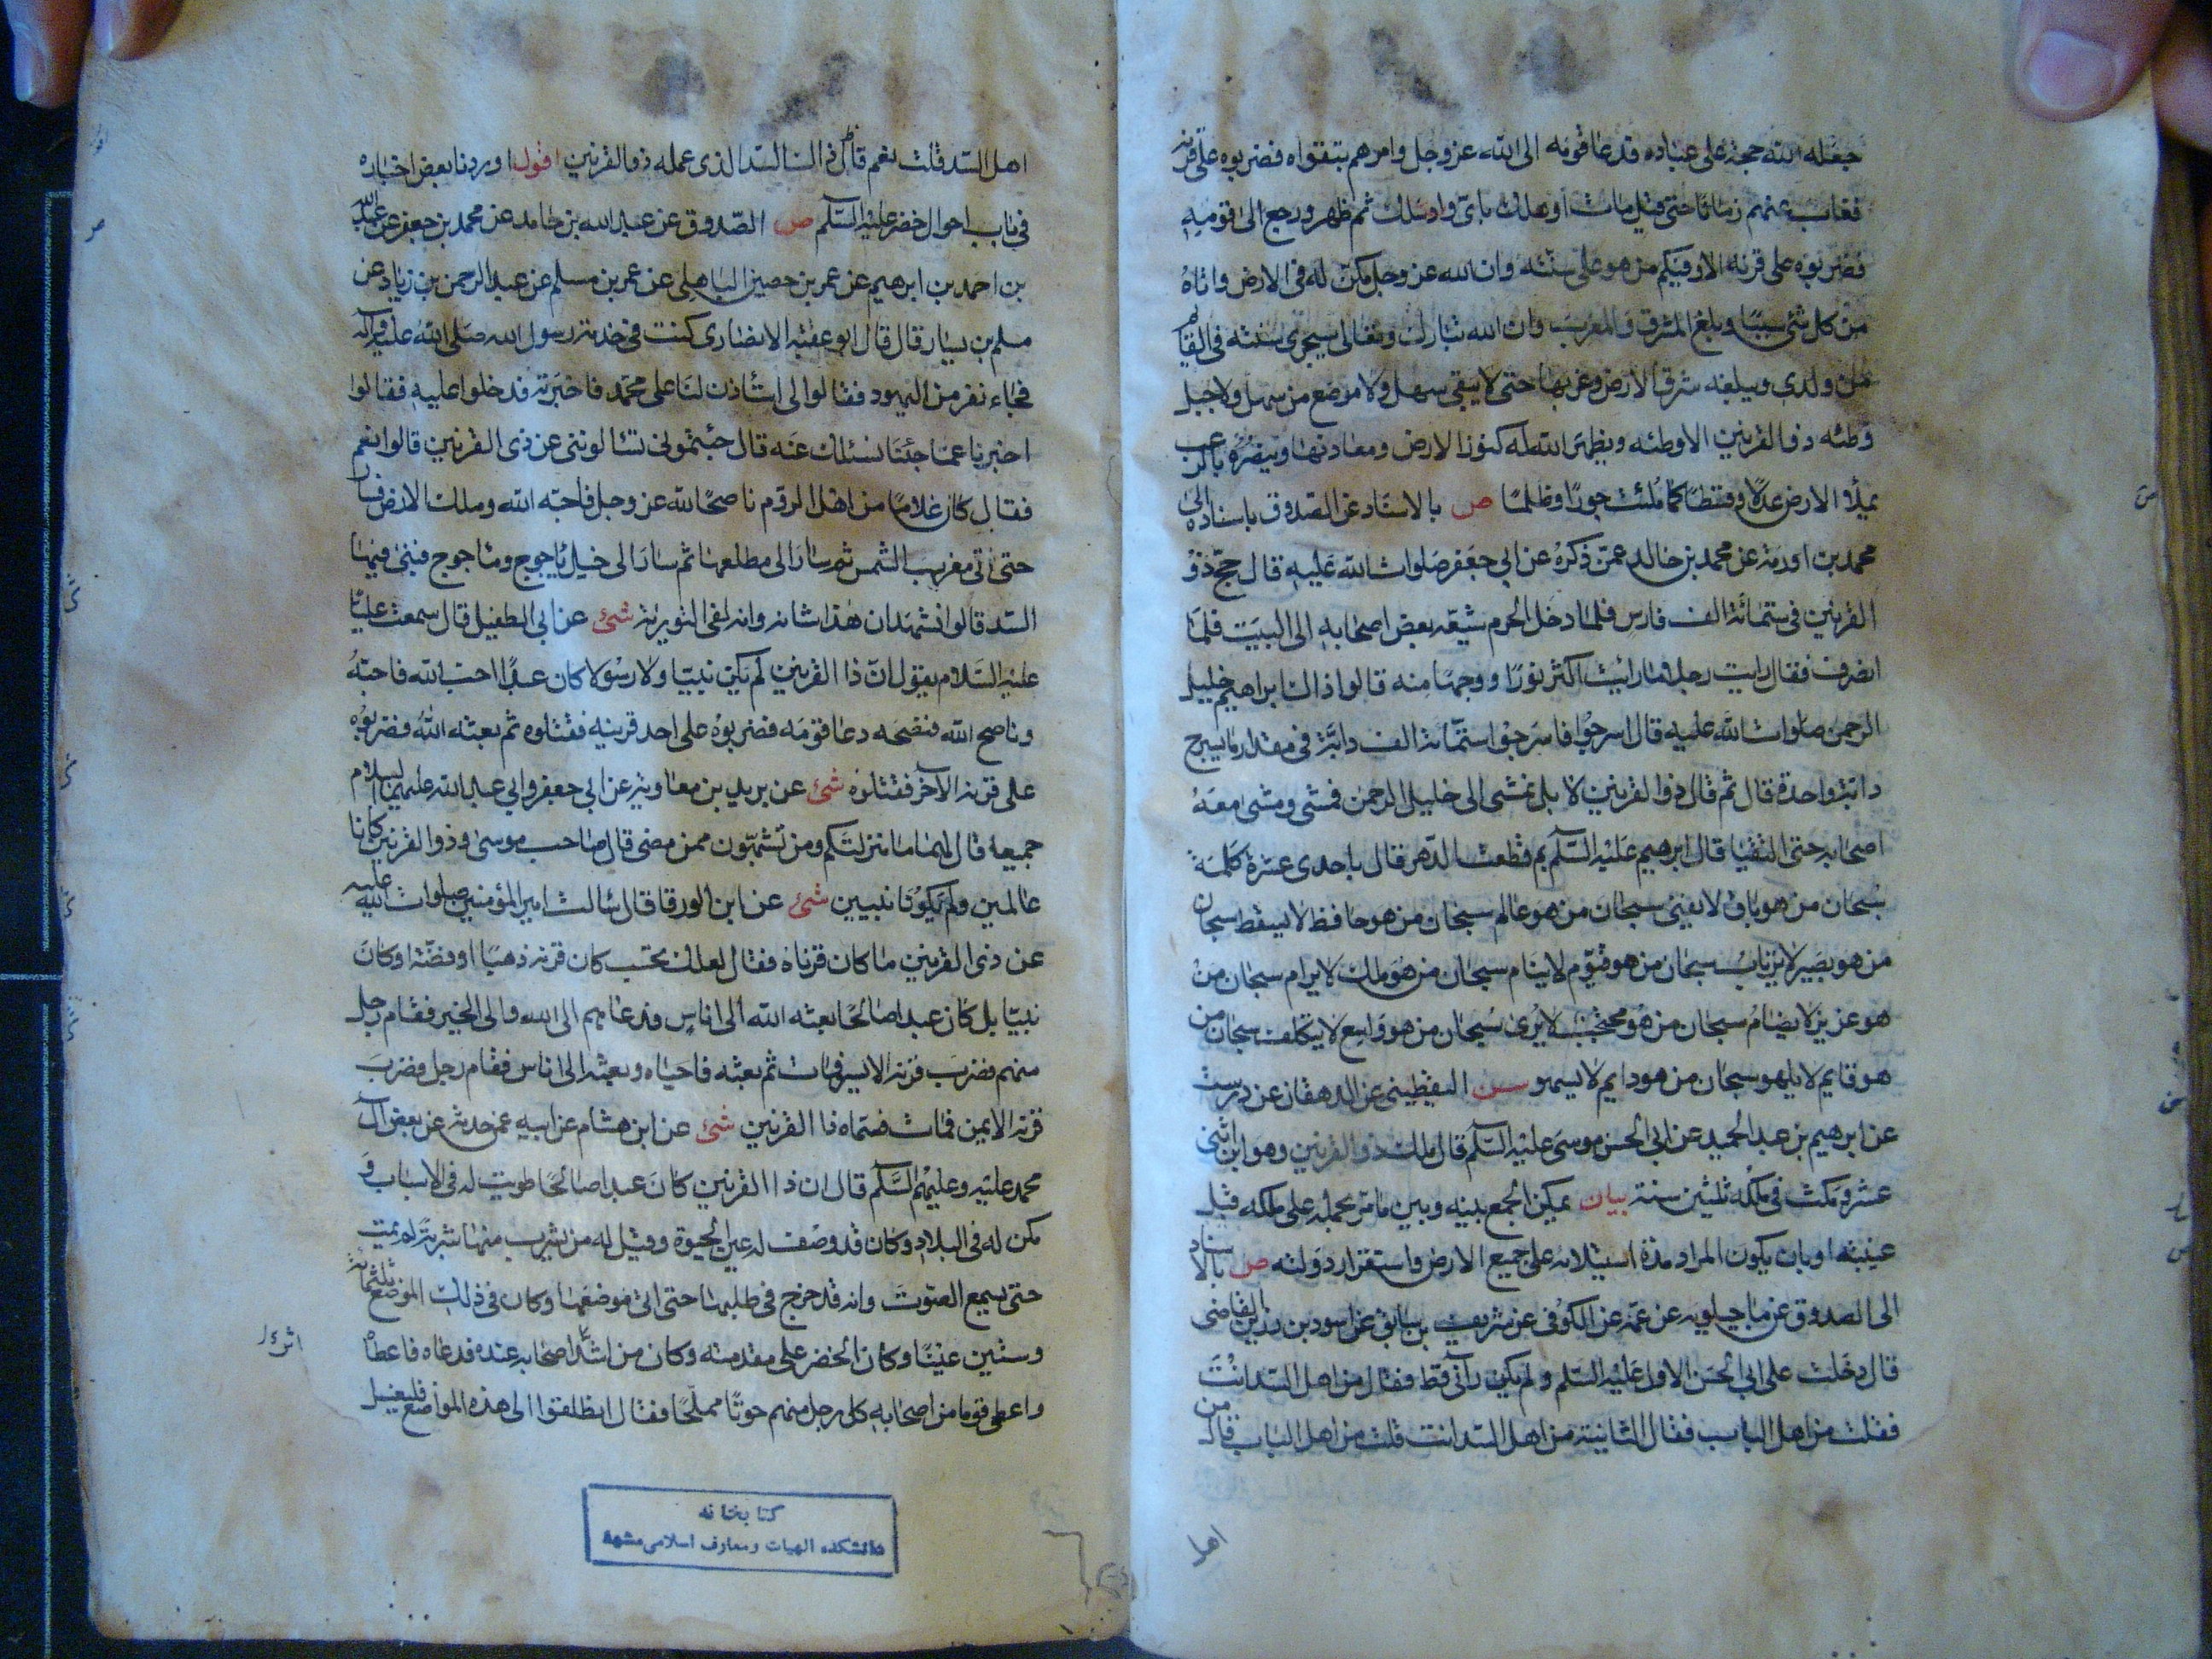 جعله الله حجة على عباده فدعا قومه الى الله عز وجل وامرهم بتقواه فضربوه على قرنه
فغاب عنهم زمانا حتى قيل مات او هلك باى واد سلك ثم ظهر ورجع الى قومه
فضربوه على قرنه الا وفيكم من هو على سنته وان الله عز وجل مكن له فى الارض واتاه
من كل شئ سببا وبلغ المشرق والمغرب وان الله تبارك وتعالى سيجرى سنته فى القائم
من ولدى ويبلغه شرق الارض وغربها حتى لا يبقى سهل ولا موضع من سهل ولا جبل
وطئه ذو القرنين الا وطئه ويظهر الله له كنوز الارض ومعادنها وينصره بالرعب
يملأ الارض عدلا وقسطا كما ملئت جورا وظلما ص بالاسناد عن الصدوق باسناده الى
محمد بن اورمة عن محمد بن خالد عمن ذكره عن ابي جعفر صلوات الله عليه قال حج ذو
القرنين فى ستمائة الف فارس فلما دخل الحرم شيعه بعض اصحابه الى البيت فلما
انصرف فقال رايت رجلا ما رايت اكثر نورا ووجها منه قالوا ذاك ابراهيم خليل
الرحمن صلوات الله عليه قال اسرجوا فاسرجوا ستمائة الف دابة فى مقدار ما يسرج
دابة واحدة قال ثم قال ذو القرنين لا بل نمشى الى خليل الرحمن فمشى ومشى معه
اصحابه حتى التقيا قال ابرهيم عليه السلم بم قطعت الدهر قال باحدى عشرة كلمة
سبحان من هو باق لا يفنى سبحان من هو عالم سبحان من هو حافظ لا يسقط سبحان
من هو بصير لا يرتاب سبحان من هو قيوم لا ينام سبحان من هو ملك لا يرام سبحان من
هو عزيز لا يضام سبحان من هو محتجب لا يرى سبحان من هو واسع لا يتكلف سبحان من
هو قايم لا يلهو سبحان من هو دايم لا يسهو سن اليقطينى عن الدهقان عن درست
عن ابرهيم بن عبد الحميد عن ابي الحسن موسى عليه السلم قال ملك ذو القرنين وهو ابن اثنى
عشر ومكث فى ملكه ثلثين سنة بيان يمكن الجمع بينه وبين ما مر بحمله على ملكه قبل
غيبته او بان يكون المراد مدة استيلائه على جميع الارض واستقرار دولته ص بالاسناد
الى الصدوق عن ماجيلويه عن عمه عن الكوفى عن شريف بن سابق عن اسود بن رزين القاضى
قال دخلت على ابي الحسن الاول عليه السلم ولم يكن رآنى قط فقال من اهل السد انت
فقلت من اهل الباب فقال الثانية من اهل السد انت قلت من اهل الباب قال من
اهل
اهل السد قلت نعم قال ذاك السد الذى عمله ذو القرنين اقول اوردنا بعض اخباره
فى باب احوال خضر عليه السلم ص الصدوق عن عبد الله بن حامد عن محمد بن جعفر عن عبد الله
بن احمد بن ابرهيم عن عمر بن حصين الباهلى عن عمر بن مسلم عن عبد الرحمن بن زياد عن
مسلم بن يسار قال قال ابو عقبه الانصارى كنت فى خدمة رسول الله صلى الله عليه وآله
فجاء نفر من اليهود فقالوا لى استأذن لنا على محمد فاخبرته فدخلوا عليه فقالوا
اخبرنا عما جئنا نسئلك عنه قال جئتمونى تسالوننى عن ذى القرنين قالوا نعم
فقال كان غلاما من اهل الروم ناصحا لله عز وجل فاحبه الله وملك الارض فسار
حتى اتى مغرب الشمس ثم سار الى مطلعها ثم سار الى خيل ياجوج وماجوج فبنى فيها
السد قالوا نشهد ان هذا شانه وانه لفى التورية شئ عن ابي الطفيل قال سمعت عليا
عليه السلام يقول ان ذا القرنين لم يكن نبيا ولا رسولا كان عبدا احب الله فاحبه
وناصح الله فنصحه دعا قومه فضربوه على احد قرنيه فقتلوه ثم بعثه الله فضربوه
على قرنه الآخر فقتلوه شئ عن بريد بن معاوية عن ابي جعفر وابي عبد الله عليهما السلام
جميعا قال لهما ما منزلتكم ومن تشبهون ممن مضى قال صاحب موسى وذو القرنين كانا
عالمين ولم يكونا نبيين شئ عن ابن الورقا قال سالت امير المؤمنين صلوات الله عليه
عن ذى القرنين ما كان قرناه فقال لعلك تحسب كان قرنه ذهبا او فضة او كان
نبيا بل كان عبدا صالحا بعثه الله الى اناس فدعاهم الى الله والى الخير فقام رجل
منهم فضرب قرنه الايسر فمات ثم بعثه فاحياه وبعثه الى اناس فقام رجل فضرب
قرنه الايمن فمات فسماه ذا القرنين شئ عن ابن هشام عن ابيه عمن حدثه عن بعض آل
محمد عليه وعليهم السلم قال ان ذا القرنين كان عبدا صالحا طويت له فى الاسباب و
مكن له فى البلاد وكان قد وصفت له عين الحيوة وقيل له من يشرب منها شربة لم يمت
حتى يسمع الصوت وانه قد خرج فى طلبها حتى اتى موضعها وكان فى ذلك الموضع ثلثمائة
وستين عينا وكان الخضر على مقدمته وكان من اشد اصحابه عنده فدعاه فاعطاه
واعطى قوما من اصحابه كل رجل منهم حوتا مملحا فقال انطلقوا الى هذه المواضع فليغسل
كتابخانه
دانشكده الهيات ومعارف اسلامى مشهد